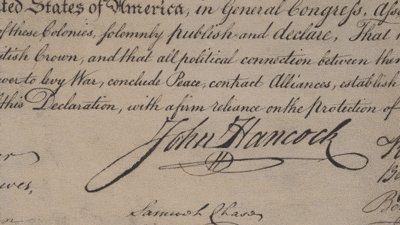 ted States of America, in General Congress, Ass
of these Colonies, solemnly publish and declare, That
itish Crown, and that all political connection between them
wer to levy War, conclude Peace, contract Alliances, establish
this Declaration, with a firm reliance on the protection of
John Hancock
Samuel Chase